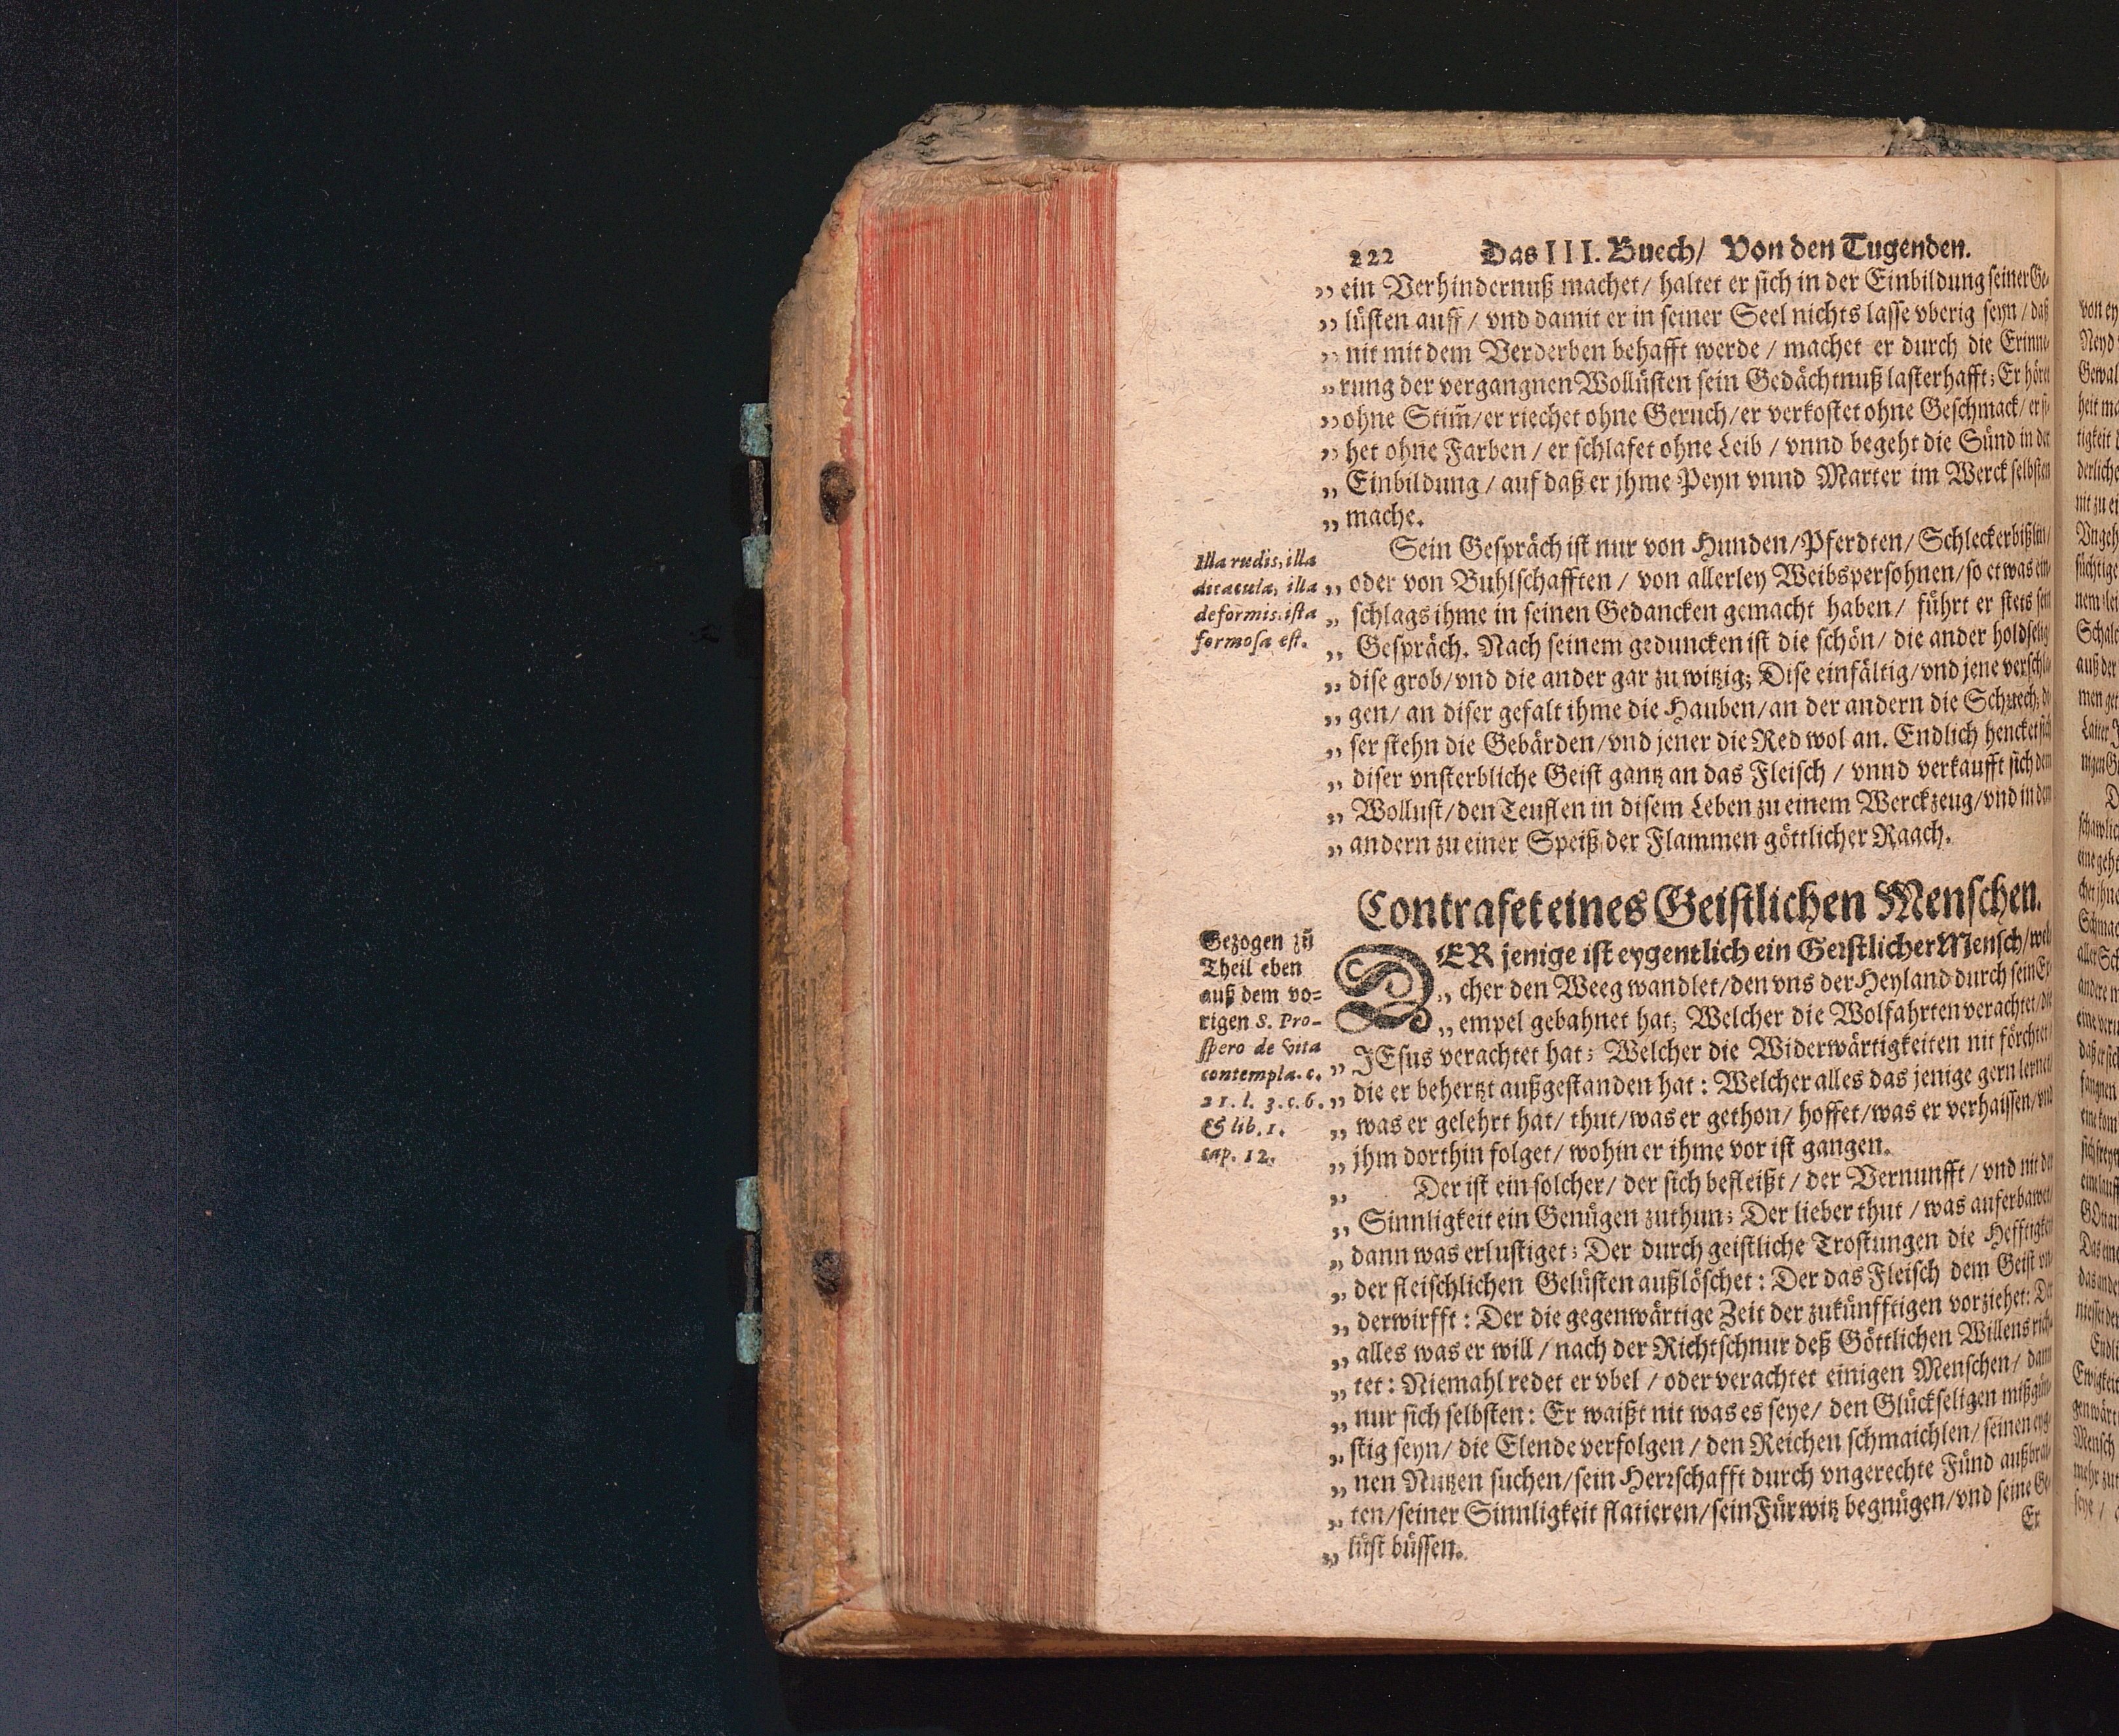 222 Das III. Buech/ Von den Tugenden.
„ ein Verhindernuß machet/ haltet er sich in der Einbildung seiner Ge-
„ lüsten auff / vnd damit er in seiner Seel nichts lasse vberig seyn / daß
„ nit mit dem Verderben behafft werde / machet er durch die Erinne-
„ rung der vergangnen Wollüsten sein Gedächtnuß lasterhafft; Er höret
„ ohne Stim̃/ er riechet ohne Geruch/ er verkostet ohne Geschmack/ er si-
„ het ohne Farben / er schlafet ohne Leib / vnnd begeht die Sünd in der
„ Einbildung / auf daß er jhme Peyn vnnd Marter im Werck selbsten
„ mache.
Sein Gespräch ist nur von Hunden/ Pferdten/ Schleckerbißlin/
„ oder von Buhlschafften / von allerley Weibspersohnen/ so etwas ein-
„ schlags ihme in seinen Gedancken gemacht haben/ führt er stets sein
„ Gespräch. Nach seinem geduncken ist die schön/ die ander holdselig
„ dise grob/ vnd die ander gar zu witzig; Dise einfältig/ vnd jene verschla-
„ gen/ an diser gefalt ihme die Hauben/ an der andern die Schuech; di-
„ ser stehn die Gebärden/ vnd jener die Red wol an. Endlich hencket sich
„ diser vnsterbliche Geist gantz an das Fleisch / vnnd verkaufft sich dem
„ Wollust/ den Teuflen in disem Leben zu einem Werckzeug/ vnd in dem
„ andern zu einer Speiß der Flammen göttlicher Raach.
Illa rudis, illa
dicacula, illa
deformis, ista
formosa est.
Contrafet eines Geistlichen Menschen.
DER jenige ist eygentlich ein Geistlicher Mensch/ wel-
„ cher den Weeg wandlet/ den vns der Heyland durch sein Ex-
„ empel gebahnet hat; Welcher die Wolfahrten verachtet/ die
„ JEsus verachtet hat; Welcher die Widerwärtigkeiten nit förchtet/
„ die er behertzt außgestanden hat: Welcher alles das jenige gern lernet
„ was er gelehrt hat/ thut/ was er gethon/ hoffet/ was er verhaissen/ vnd
„ jhm dorthin folget/ wohin er ihme vor ist gangen.
Gezogen zũ
Theil eben
auß dem vo-
rigen S. Pro-
spero de vita
contempla. c.
21. l. 3. c. 6.
& lib. 1.
cap. 12.
„ Der ist ein solcher/ der sich befleißt / der Vernunfft / vnd nit der
„ Sinnligkeit ein Genügen zuthun; Der lieber thut / was auferbawet
„ dann was erlustiget; Der durch geistliche Trostungen die Hefftigkeit
„ der fleischlichen Gelüsten außlöschet: Der das Fleisch dem Geist vn-
„ derwirfft: Der die gegenwärtige Zeit der zukünfftigen vorziehet: Der
„ alles was er will / nach der Richtschnur deß Göttlichen Willens rich-
„ tet: Niemahl redet er vbel / oder verachtet einigen Menschen/ dann
„ nur sich selbsten: Er waißt nit was es seye/ den Glückseligen mißgün-
„ stig seyn/ die Elende verfolgen / den Reichen schmaichlen/ seinen eyg-
„ nen Nutzen suchen/ sein Herrschafft durch vngerechte Fünd außbrai-
„ ten/ seiner Sinnligkeit flatieren/ sein Fürwitz begnügen/ vnd seine Ge-
„ lüst büssen.
Er